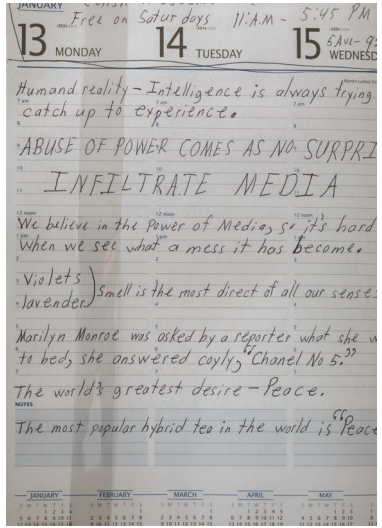 JANUARY
Free on Saturdays 11:A.M - 5:45 PM
13 MONDAY 14 TUESDAY 15 WEDNESD
5 Ave - 9
Martin Luther
Humand reality - Intelligence is always trying
7 am 7 am 7 am
catch up to experience.
ABUSE OF POWER COMES AS NO SURPRI
INFILTRATE MEDIA
12 noon 12 noon 12 noon
We believe in the Power of Media, so it's hard
When we see what a mess it has become.
Violets
lavender) Smell is the most direct of all our sense
Marilyn Monroe was asked by a reporter what she w
to bed, she answered coyly, "Chanel No 5."
The world's greatest desire - Peace.
NOTES
The most popular hybrid tea in the world is "Peace
JANUARY FEBRUARY MARCH APRIL MAY